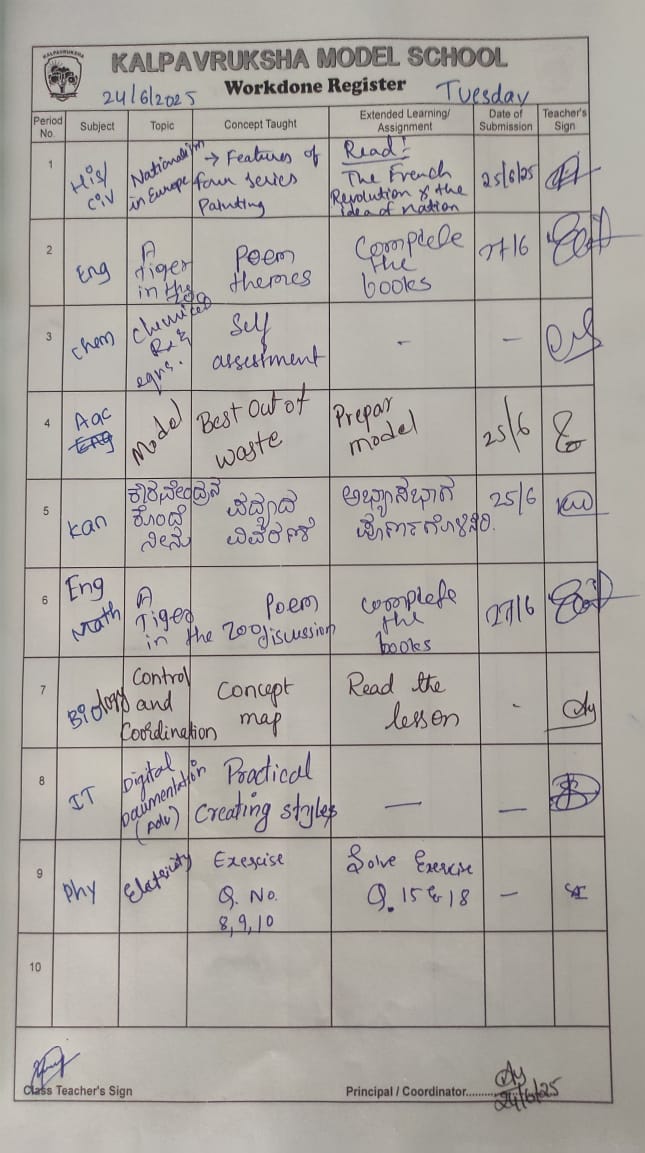 KALPAVRUKSHA MODEL SCHOOL
Workdone Register
24/6/2025
Tuesday
Period No.
Subject
Topic
Concept Taught
Extended Learning/ Assignment
Date of Submission
Teacher's Sign
1
His/ Civ
Nationalism in Europe
→ Features of four series Painting
Read! The French Revolution & the idea of nation
25/6/25
2
Eng
A Tiger in the zoo
Poem themes
Complete the books
27/6
3
Chem
Chemical Rx & eqns.
Self assestment
-
-
4
Aac
Eng
Model
Best Out of waste
Prepar model
25/6
5
Kan
ಕೌರವೇಂದ್ರನ ಕೊಂದೆ ನೀನು
ಪದ್ಯದ ವಿವರಣೆ
ಅಭ್ಯಾಸಭಾಗ
25/6
6
Eng
Math
A Tiger in the zoo
Poem disussion
Complete the books
27/6
7
Biology
Control and Coordination
Concept map
Read the lesson
-
8
IT
Digital Documentation (Adv)
Practical Creating styles
—
—
9
Phy
Eletricity
Exercise Q. No. 8,9,10
Solve Exercise Q. 15 & 18
—
10
Class Teacher's Sign
Principal / Coordinator..........
24/6/25